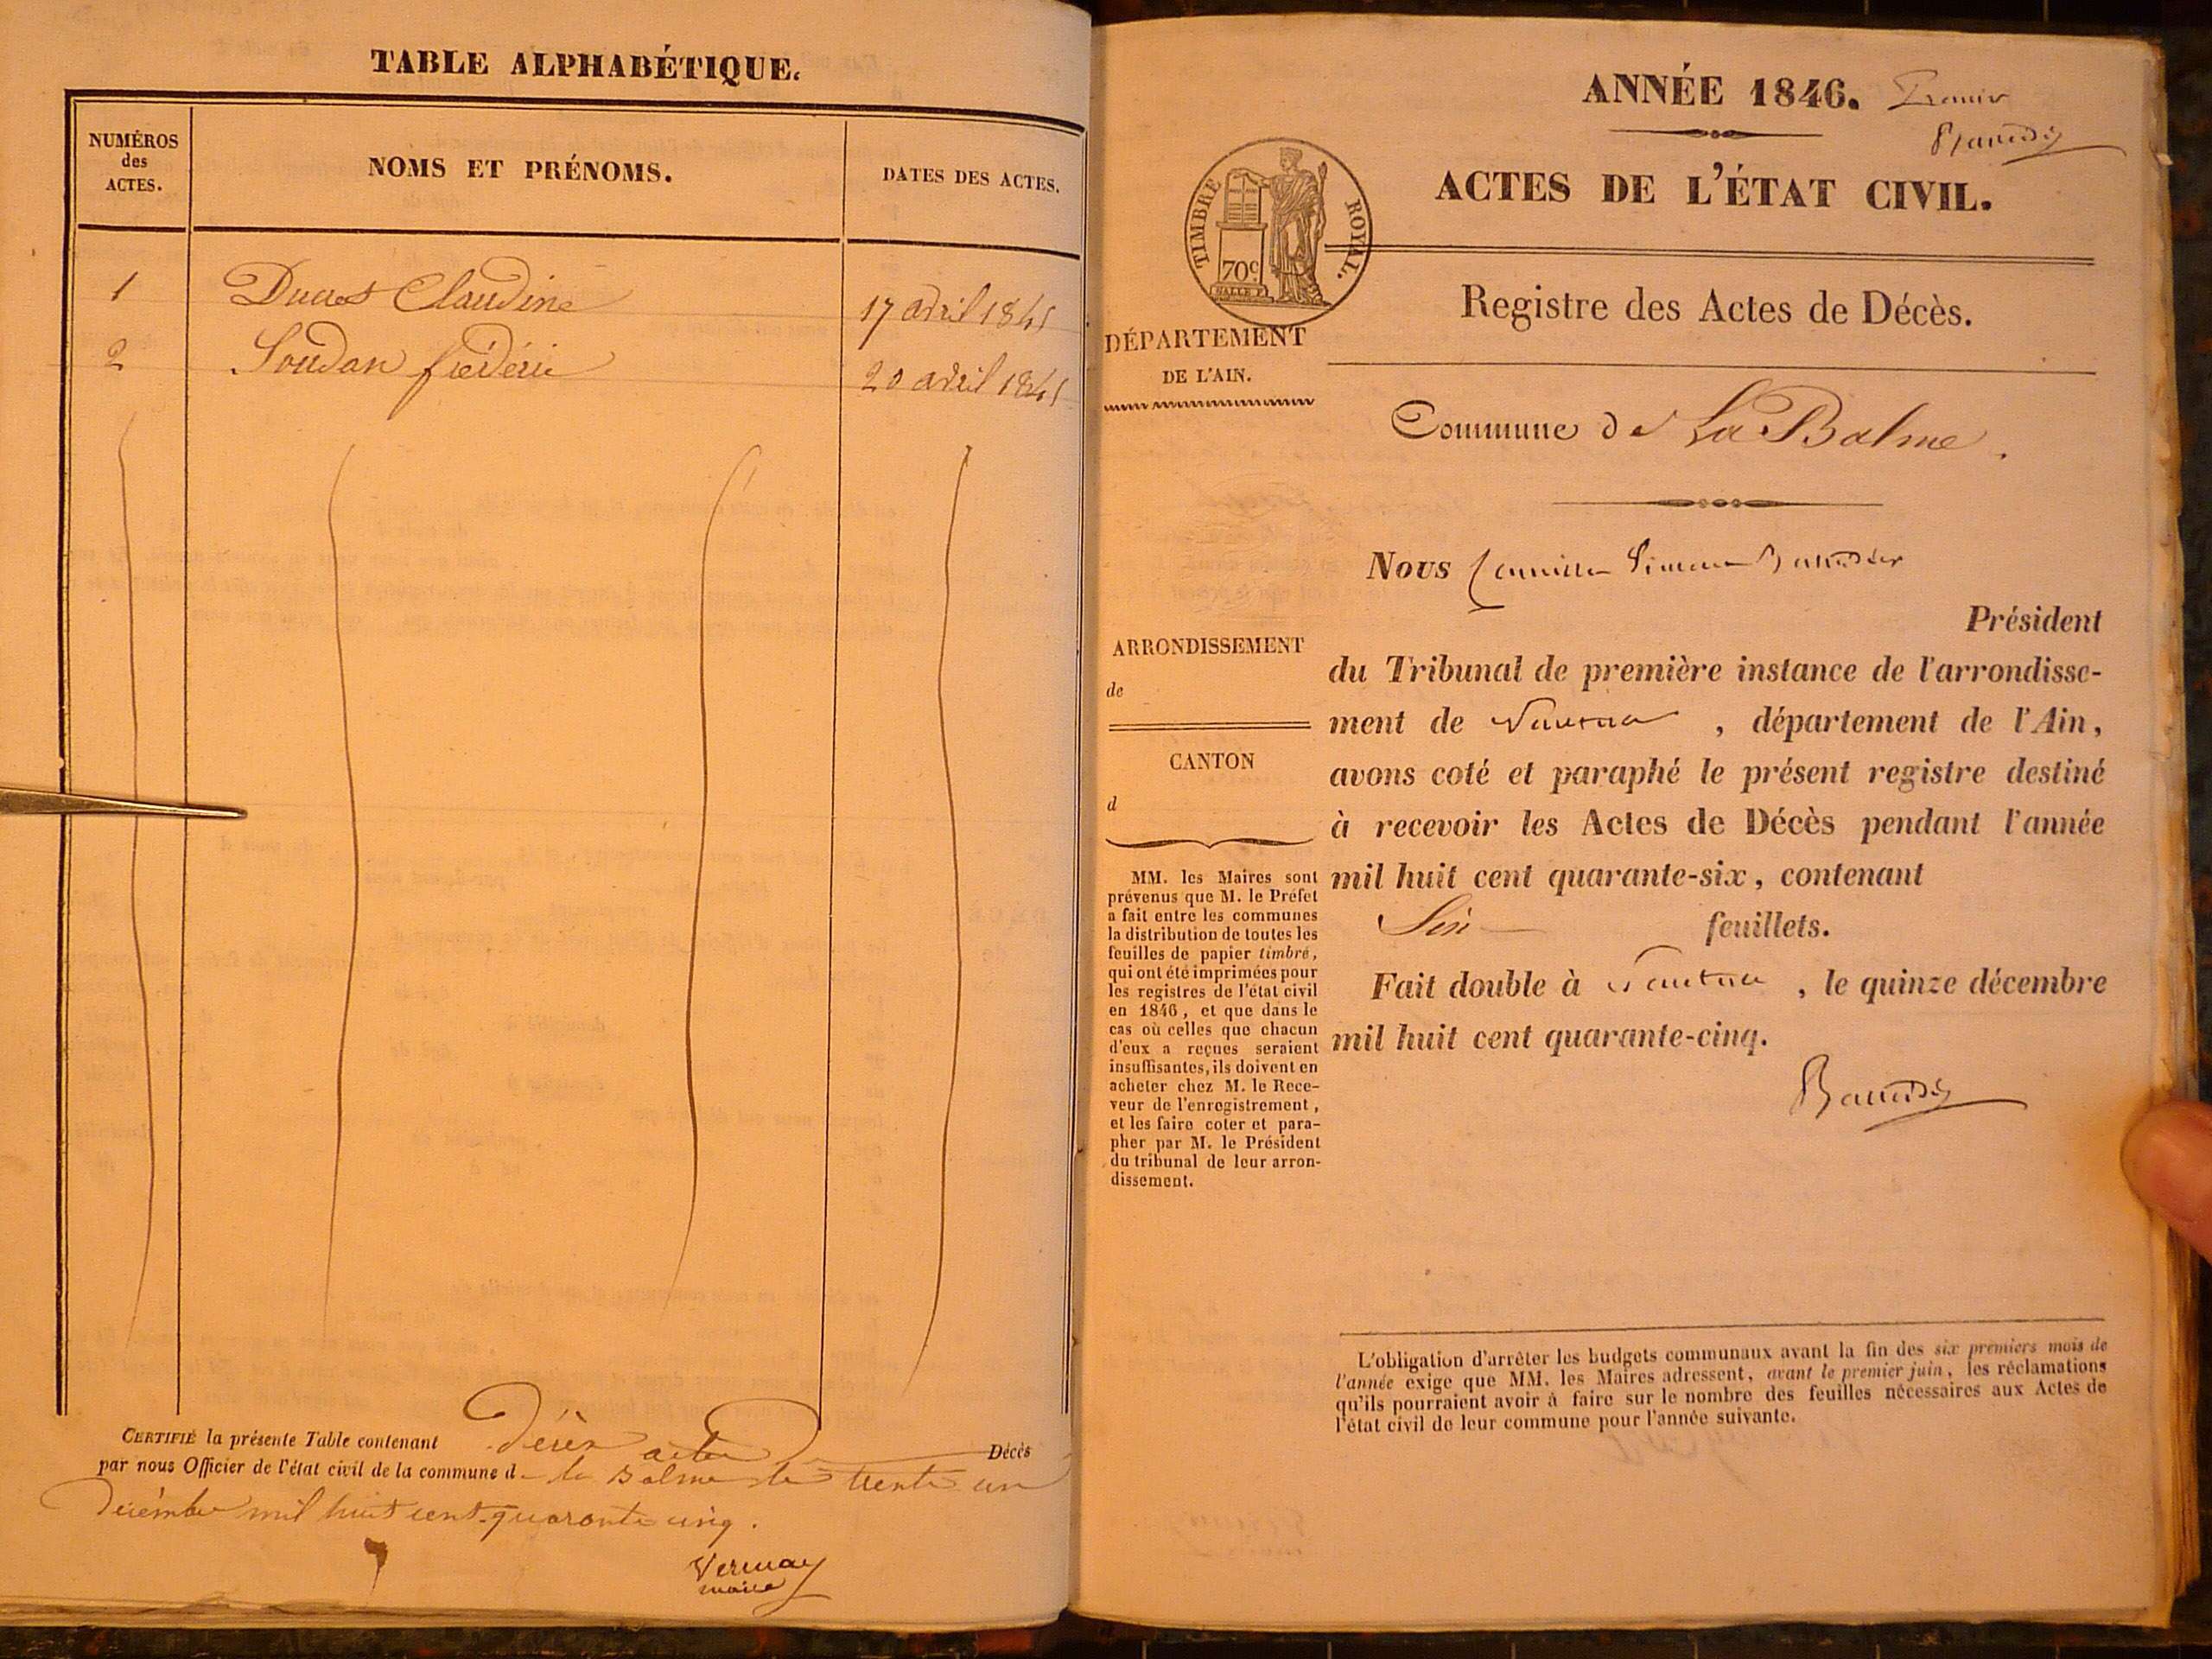 TABLE ALPHABÉTIQUE.
NUMÉROS
des
ACTES.
NOMS ET PRÉNOMS.
DATES DES ACTES.
1 Ducret Claudine 17 avril 1845
2 Soudan frédéric 20 avril 1845
CERTIFIÉ la présente Table contenant Décès
par nous Officier de l'état civil de la commune d la Balme le trente un
Décembre mil huit cent quarante cinq.
Vermay
maire
ANNÉE 1846. Premier
ACTES DE L'ÉTAT CIVIL.
TIMBRE ROYAL.
70c
Registre des Actes de Décès.
DÉPARTEMENT
DE L'AIN.
Commune de La Balme.
Nous
Président
ARRONDISSEMENT
de
CANTON
d
du Tribunal de première instance de l'arrondisse-
ment de Nantua, département de l'Ain,
avons coté et paraphé le présent registre destiné
à recevoir les Actes de Décès pendant l'année
mil huit cent quarante-six, contenant
Six feuillets.
Fait double à Nantua, le quinze décembre
mil huit cent quarante-cinq.
MM. les Maires sont
prévenus que M. le Préfet
a fait entre les communes
la distribution de toutes les
feuilles de papier timbré,
qui ont été imprimées pour
les registres de l'état civil
en 1846, et que dans le
cas où celles que chacun
d'eux a reçues seraient
insuffisantes, ils doivent en
acheter chez M. le Rece-
veur de l'enregistrement,
et les faire coter et para-
pher par M. le Président
du tribunal de leur arron-
dissement.
L'obligation d'arrêter les budgets communaux avant la fin des six premiers mois de
l'année exige que MM. les Maires adressent, avant le premier juin, les réclamations
qu'ils pourraient avoir à faire sur le nombre des feuilles nécessaires aux Actes de
l'état civil de leur commune pour l'année suivante.